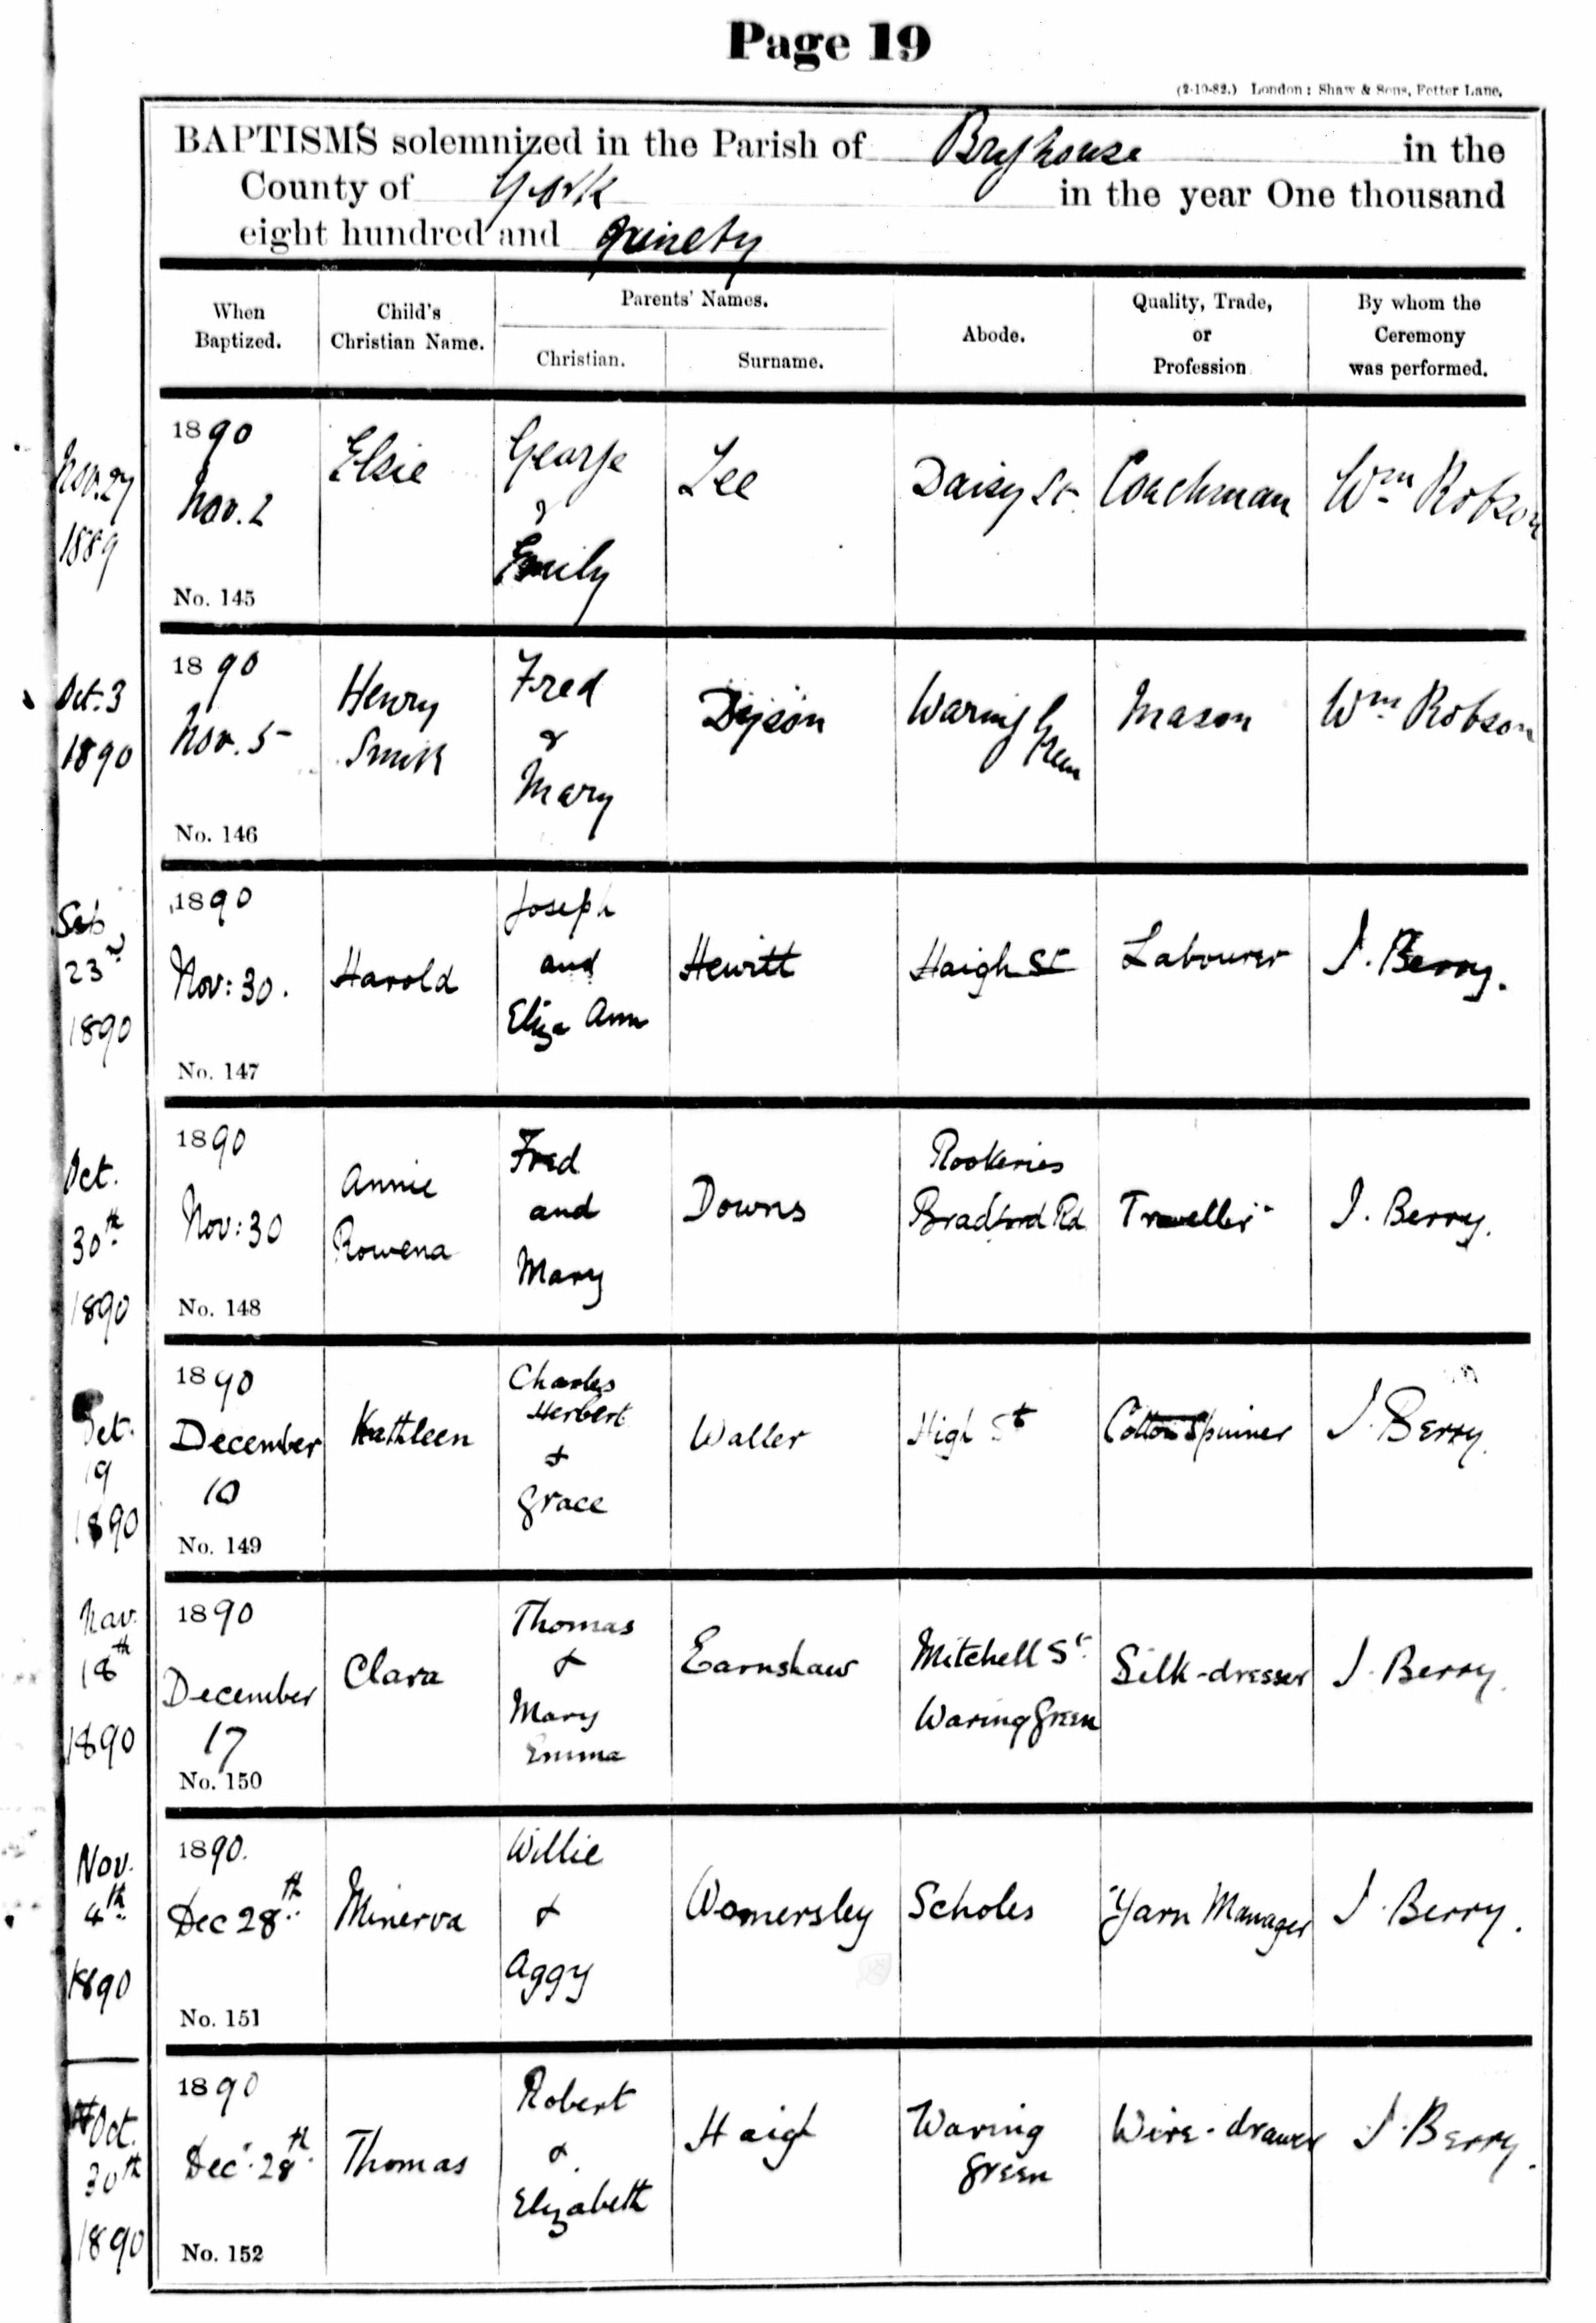 Page 19
(2-10-82.) London: Shaw & Sons, Fetter Lane,
BAPTISMS solemnized in the Parish of Bryhouse in the
County of York in the year One thousand
eight hundred and ninety
When Baptized.
Child's Christian Name.
Parents' Names.
Christian.
Surname.
Abode.
Quality, Trade, or Profession
By whom the Ceremony was performed.
Nov. 27
1889
1890
Nov. 2
No. 145
Elsie
George
&
Emily
Lee
Daisy St.
Coachman
Wm Robson
Oct. 3
1890
1890
Nov. 5
No. 146
Henry
Smith
Fred
&
Mary
Dyson
Waring Green
Mason
Wm Robson
23rd
1890
1890
Nov: 30.
No. 147
Harold
Joseph
and
Eliza Ann
Hewitt
Haigh St
Labourer
J. Berry.
Oct.
30th
1890
1890
Nov: 30
No. 148
Annie
Rowena
Fred
and
Mary
Downs
Rookeries
Bradford Rd.
Traveller
J. Berry.
Oct.
19
1890
1890
December
10
No. 149
Kathleen
Charles
Herbert
+
Grace
Waller
High St
Cotton Spinner
J. Berry.
Nov.
18th
1890
1890
December
17
No. 150
Clara
Thomas
+
Mary
Emma
Earnshaw
Mitchell St.
Waring Green
Silk-dresser
J. Berry.
Nov.
4th
1890
1890.
Dec 28th
No. 151
Minerva
Willie
+
Aggy
Womersley
Scholes
Yarn Manager
J. Berry.
Oct.
30th
1890
1890
Dec. 28th
No. 152
Thomas
Robert
&
Elizabeth
Haigh
Waring
Green
Wire-drawer
J. Berry.